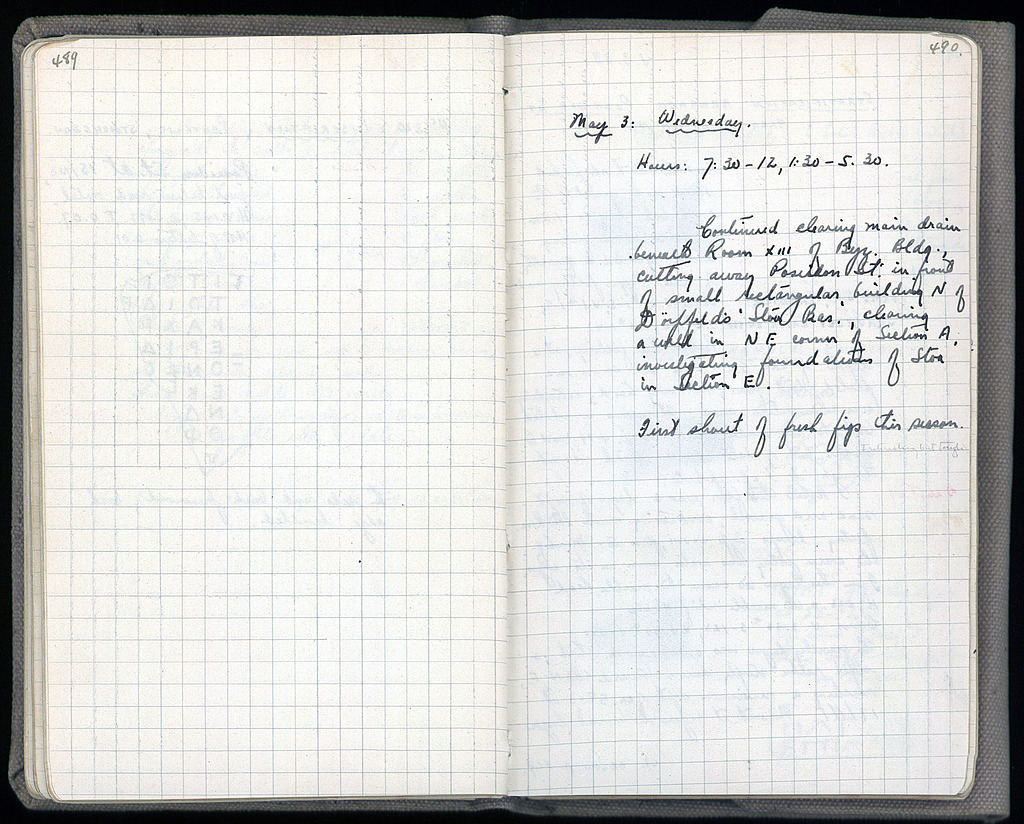 489
490.
May 3: Wednesday.
Hours: 7:30-12, 1:30-5.30.
Continued clearing main drain
beneath Room XIII of Byz. Bldg.,
cutting away Poseidon St. in front
of small rectangular building N of
Dörpfeld's 'Stoa Bas.', clearing
a well in NE corner of Section A,
investigating foundations of Stoa
in Section E.
First shout of fresh figs this season.
but tough